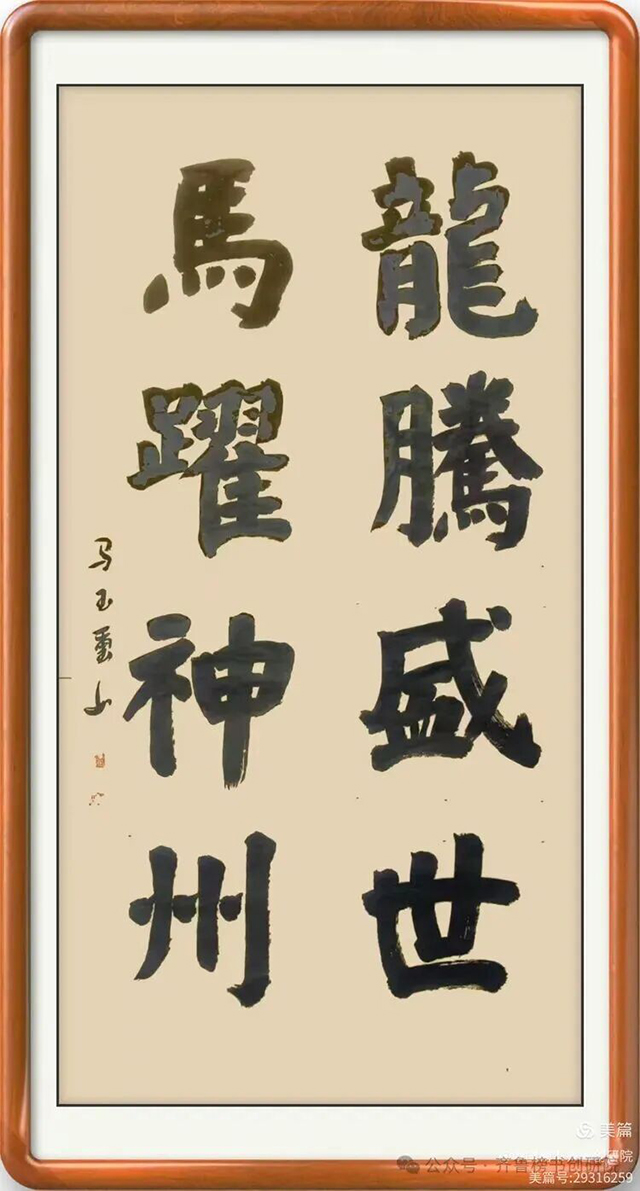 龍騰盛世
馬躍神州
马玉玺山
美篇
公众号·齐鲁榜书创研院
美篇号:29316259